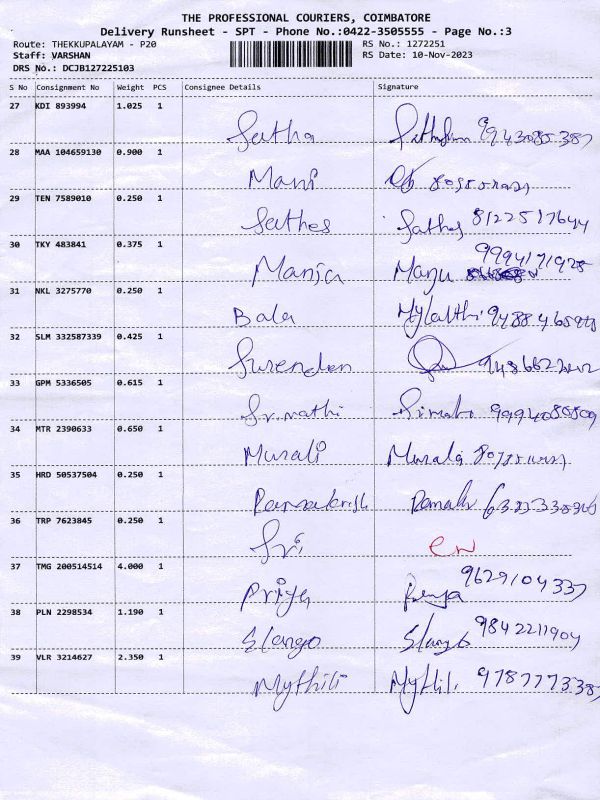 THE PROFESSIONAL COURIERS, COIMBATORE
Delivery Runsheet - SPT - Phone No.:0422-3505555 - Page No.:3
Route: THEKKUPALAYAM - P20 RS No.: 1272251
Staff: VARSHAN RS Date: 10-Nov-2023
DRS No.: DCJB127225103
S No Consignment No Weight PCS Consignee Details Signature
27 KDI 893994 1.025 1
Satha
28 MAA 104659130 0.900 1
Mani
29 TEN 7589010 0.250 1
Sathes Sathes 8122517644
30 TKY 483841 0.375 1
Manju Manju 9994171928
31 NKL 3275770 0.250 1
Bala
32 SLM 332587339 0.425 1
Surendan
33 GPM 5336505 0.615 1
Srimathi
34 MTR 2390633 0.650 1
Murali Murali
35 HRD 50537504 0.250 1
Ramakrish
36 TRP 7623845 0.250 1
Sri
37 TMG 200514514 4.000 1
Priya 9629104337
38 PLN 2298534 1.190 1
Elango Elango 9842211904
39 VLR 3214627 2.350 1
Mythili Mythili 978777338